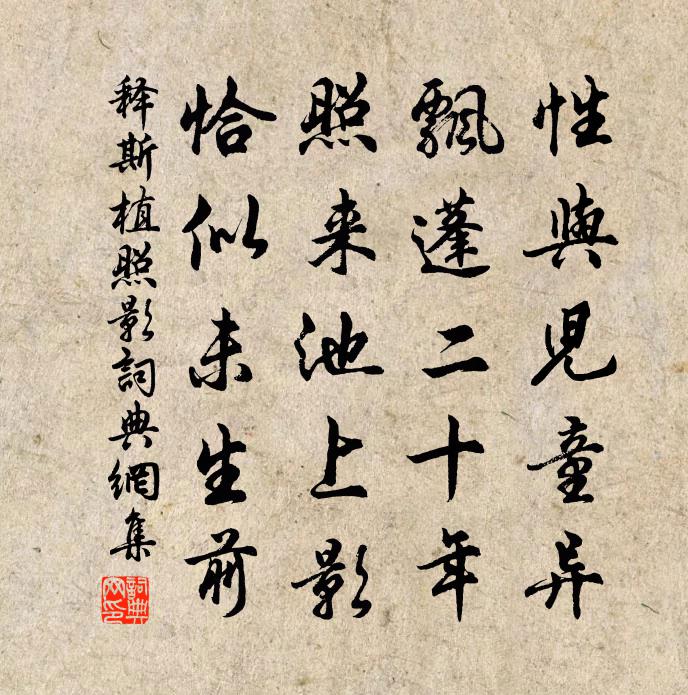 性與児童异
飄蓬二十年
照来池上影
恰似未生前
释斯植照影詞典網集
詞典網印